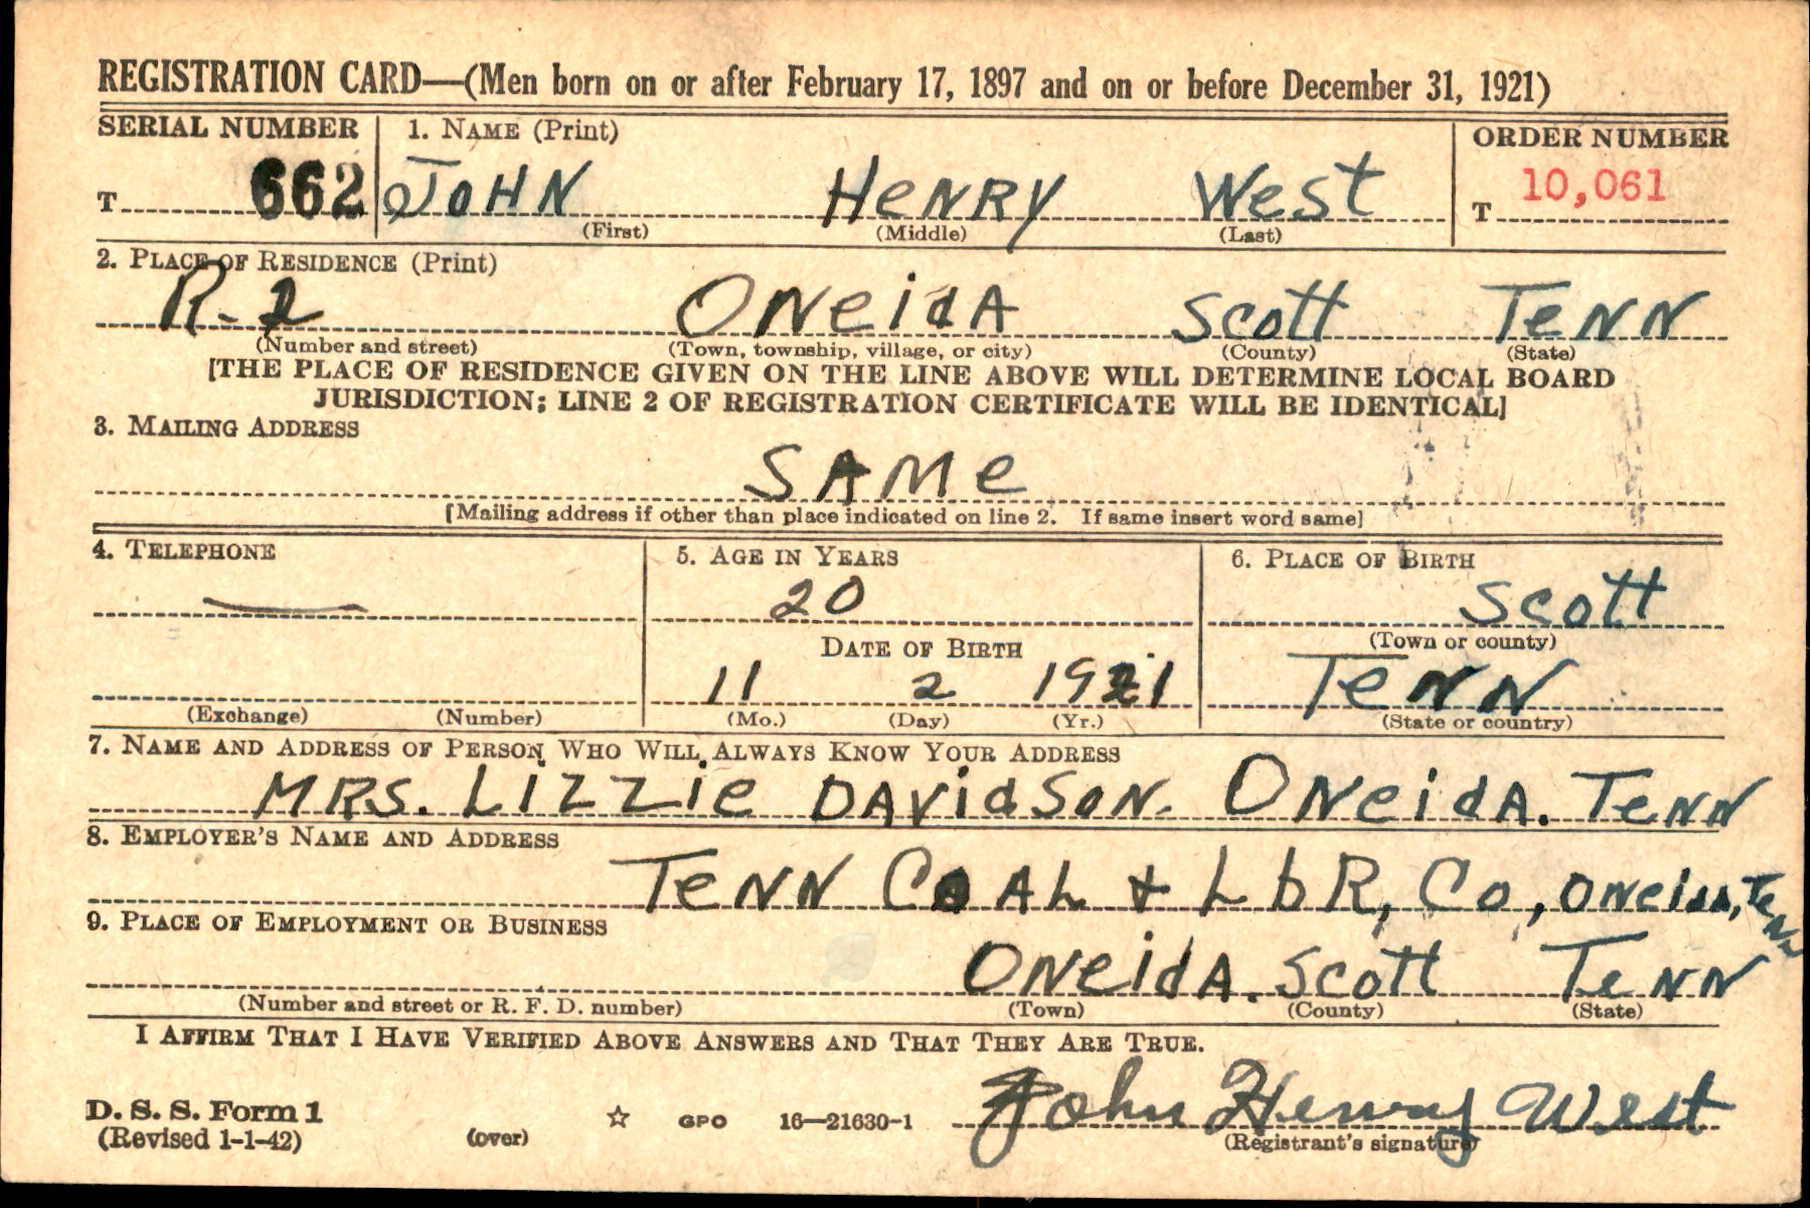 REGISTRATION CARD—(Men born on or after February 17, 1897 and on or before December 31, 1921)
SERIAL NUMBER 1. NAME (Print) ORDER NUMBER
T 662 JOHN HENRY West T 10,061
(First) (Middle) (Last)
2. PLACE OF RESIDENCE (Print)
R-2 ONeidA Scott TeNN
(Number and street) (Town, township, village, or city) (County) (State)
[THE PLACE OF RESIDENCE GIVEN ON THE LINE ABOVE WILL DETERMINE LOCAL BOARD
JURISDICTION; LINE 2 OF REGISTRATION CERTIFICATE WILL BE IDENTICAL]
3. MAILING ADDRESS
SAMe
[Mailing address if other than place indicated on line 2. If same insert word same]
4. TELEPHONE 5. AGE IN YEARS 6. PLACE OF BIRTH
— 20 Scott
DATE OF BIRTH (Town or county)
11 2 1921 TeNN
(Exchange) (Number) (Mo.) (Day) (Yr.) (State or country)
7. NAME AND ADDRESS OF PERSON WHO WILL ALWAYS KNOW YOUR ADDRESS
MRS. LIZZie DAVidSON. ONeidA. TeNN
8. EMPLOYER'S NAME AND ADDRESS
TeNN COAL + LbR, Co, ONeidA, TeNN
9. PLACE OF EMPLOYMENT OR BUSINESS
ONeidA. Scott TeNN
(Number and street or R. F. D. number) (Town) (County) (State)
I AFFIRM THAT I HAVE VERIFIED ABOVE ANSWERS AND THAT THEY ARE TRUE.
D. S. S. Form 1
(Revised 1-1-42) (over) ☆ GPO 16—21630-1 John Henry West
(Registrant's signature)